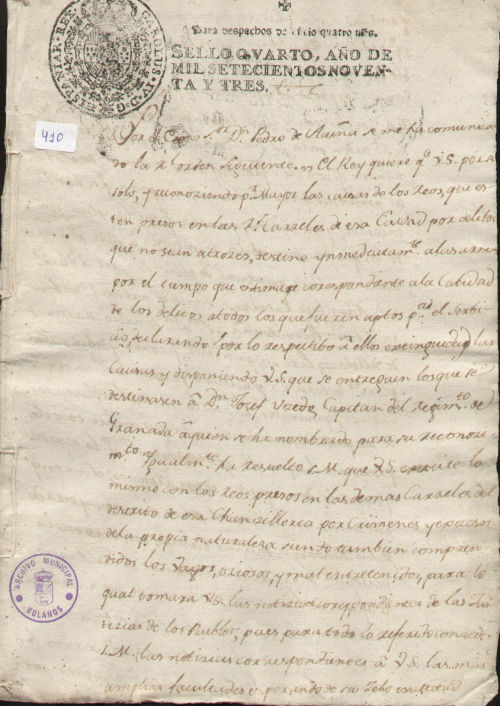 HISPANIAR. REX
CAROLUS IV D.G.
Para despachos de oficio quatro mrs.
SELLO QVARTO, AÑO DE
MIL SETECIENTOS NOVEN-
TA Y TRES.
410
Por el Sr. Dn. Pedro de se me ha comunica
do la Rl orden siguiente. El Rey quiere qe. V.S. por si
solo, y reconoziendo pr. Mayor las causas de los Reos, que es
ten presos en las Rs. Carzeles de esa Ciudad por delitos
que no sean atrozes, destine ynmediatamte. a las armas
por el tiempo que estimare correspondiente a la Calidad
de los delitos a todos los que fueren aptos pa. el Serbi
cio declarando por lo respectibo a ellos extinguidas las
Causas y disponiendo V.S. que se entreguen los que se
destinasen a Dn. Josef Uzedo, Capitan del Regimto. de
Granada a quien se ha nombrado para su reconozi
mto. Ygualmte. ha resuelto S.M. que V.S. execute lo
mismo con los Reos presos en las demas Carzeles del
destrito de esa Chanzilleria por Crimenes y excesos
de la propia naturaleza siendo tambien compren
didos los Vagos, oziosos, y mal entretenidos, para lo
qual tomara V.S. las notizias correspondientes de las Jus
tizias de los Pueblos; pues para todo lo referido concede
S.M. las notizias correspondientes a V.S. las mas
amplias facultades esperando de su Zelo
ARCHIVO MUNICIPAL
BOLAÑOS